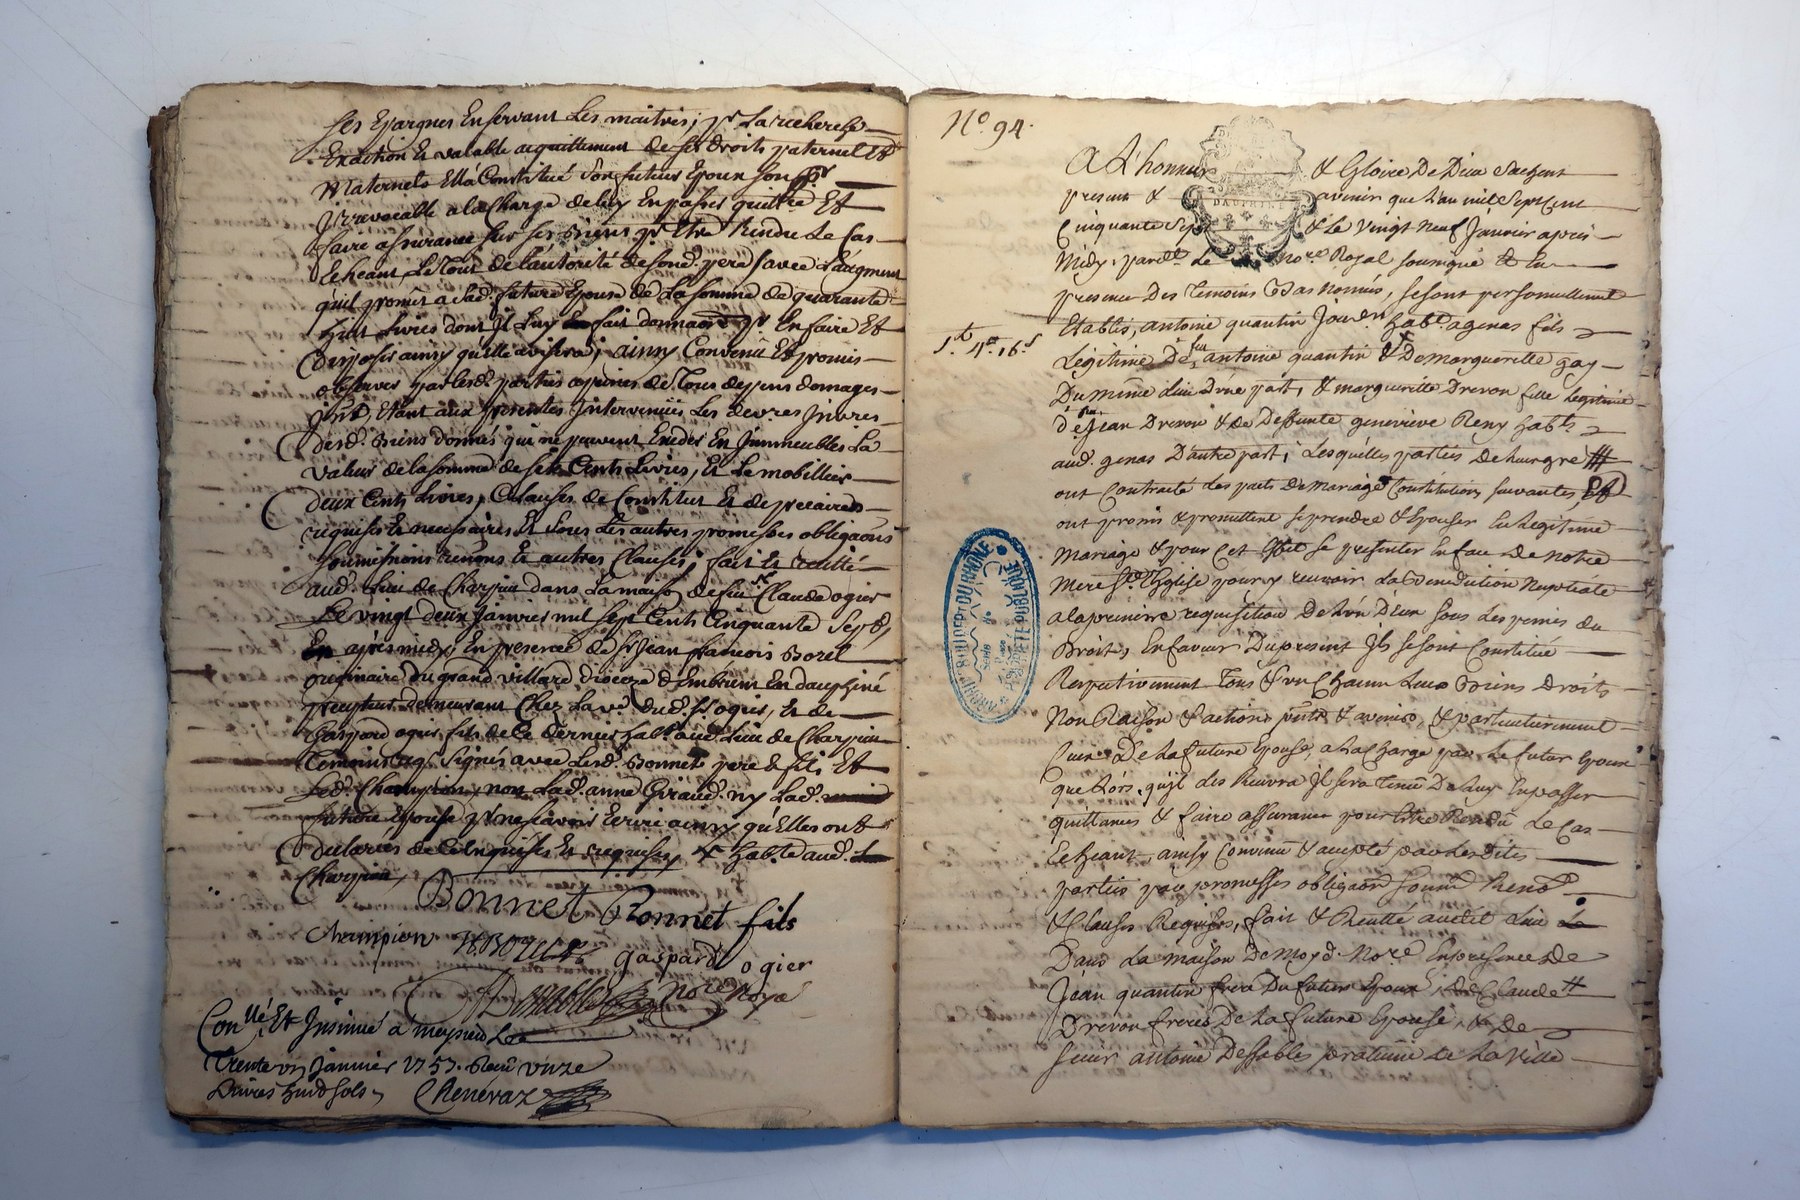 ses Epargnes En servant Les maitres; pr La recherche
Exaction Et valable acquittement de ses droits paternels Et
Maternels Ella Constitué son futur Epoux son pr
Jrrevocable a la Charge de luy En passer quittce Et
faire assurance sur ses Biens pr Etre Rendu Le Cas
Echeant, Le Tout de l'autorité de son d. pere, avec L'augment
qu'il promet a lad. future Epouse de La somme de quarante
huit Livres dont Jl Luy En fait donnaon pr En faire Et
disposer ainsy qu'elle avisera; ainsy Convenu Et promis
observer par lesd. parties a peines de Tous depens domages
Etant aux presentes Intervenües Les
desd. Biens donnés qui ne peuvent Exeder En Jmmeubles La
valeur de la somme de sept Cents Livres, Et Le mobillier
deux Cents Livres, Clauses de Constitut Et de precaires
requises Et necessaires Et sous Les autres promesses obligaons
soumissions renons Et autres Clauses, fait Et recitté
aud. Lieu de Charpieu dans La maison de feu sr Claude ogier
Le vingt deux Janvier mil sept Cents Cinquante Sept,
En aprés midy, En presence de Sr Jean francois Borel
originaire du grand villard Dioceze d'Embrun En dauphiné
precepteur demeurant Chez La ve. dud. Sr ogier, Et de
Gaspard ogier fils de Ce dernier habt. aud. Lieu de Charpieu
Temoins Signés avec Lesd. Bonnet pere & fils Et
Led. Champion, non Lad. anne Giraud ny Lad.
future Epouse pr ne scavoir Ecrire ainsy qu'Elles ont
declarées de Ce Enquises Et requises, & habte aud.
Charpieu,
Bonnet Bonnet fils
Champion
gaspard ogier
nore Royal
Conllé Et Jnsinué a meyzieu Le
Trente un Janvier 1757. Reçu unze
Livres huit sols
Chenevaz
No. 94.
A L'honneur & Gloire De Dieu Sachent
DAUPHINÉ
presents & avenir que L'an mil Sept Cent
Cinquante Sept & Le vingt Neuf Janvier aprés
Midy, pardt. Le Nore. Royal soussigné & En
presence Des Temoins Bas Nommés, se sont personnellement
Etablis, antoine quantin Jour.er habt. a genas fils
Légitime De feu antoine quantin & De margueritte gay
Du même Lieu D'une part, & marguerite Drevon fille Legitime
de feu Jean Drevon & de Deffunte genevieve Remy habts
aud. genas D'autre part; Lesquélles parties De leur gré
ont Contracté Les pacts De mariage & Constitutions suivantes, Et
ont promis & promettent se prendre & Epouser En Legitime
Mariage & pour Cet Effet se presenter En face De Notre
Mere Ste. Eglise pour y recevoir La Benediction Nuptiale
a la premiere requisition De L'un D'Eux sous Les peines du
Droit, En faveur Du present Jls se sont Constitué
Respectivement Tous & un Chacun Leurs Biens Droits
Nom Raison & actions pnts & avenirs, & particulierement
Ceux De La future Epouse, a La Charge par Le futur Epoux
que Lors qu'jl Les Recevra Jl sera Tenu De Luy En passer
quittances & faire assurance pour Etre Rendu Le Cas
Echeant, ainsy Convenu & accepté par Les Dites
parties par promesses obligaons Soumns Renons
& Clauses Requises, fait & Recitté aud. Lieu
Dans La maison De moyd. Nore. En presence De
Jean quantin frere Du futur Epoux, & Claude
Drevon freres De La future Epouse, & De
sieur antoine Dessables praticien De La Ville